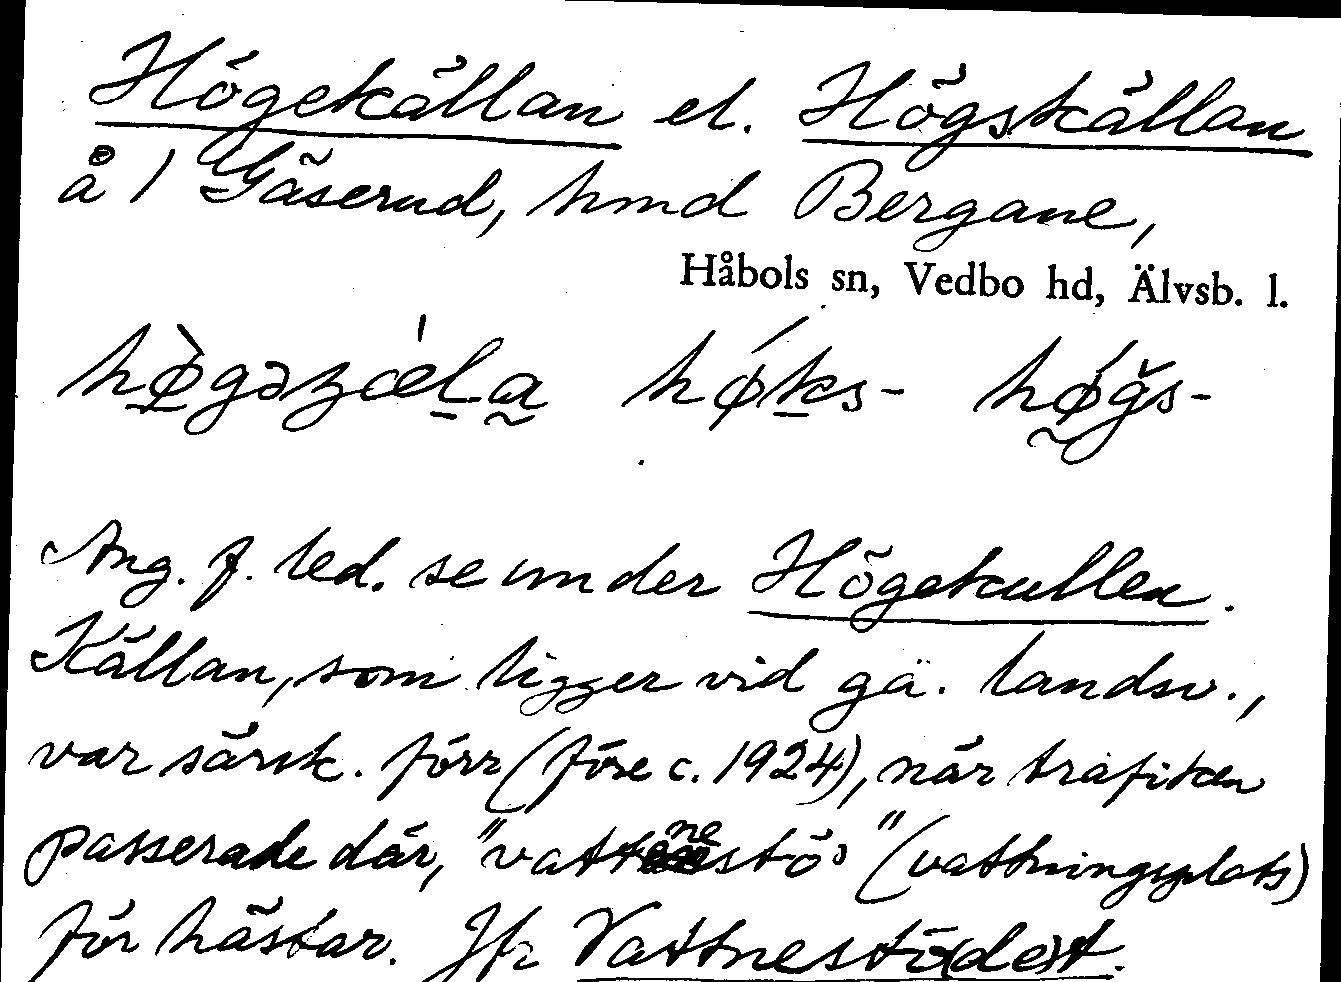 Högekällan el. Högskällan
å 1 Gäserud, hmd Bergane,
Håbols sn, Vedbo hd, Älvsb. l.
hø̀gəʒæ̀la hǿks- hǿgs-
Ang. f. led. se under Högekullen.
Källan, som ligger vid gä. landsv.,
var särsk. förr (före c. 1924), när trafiken
passerade där, "vattnestö" (vattningsplats)
för hästar. Jfr Vattnestö(de)t.